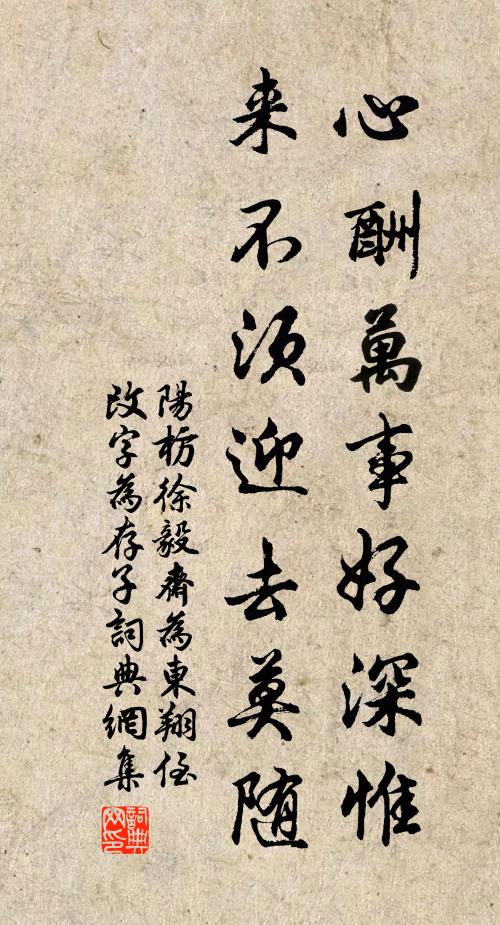 心酬萬事好深惟
来不须迎去莫随
陽枋徐毅齋為東翔侄
改字為存子詞典網集
詞典
网印